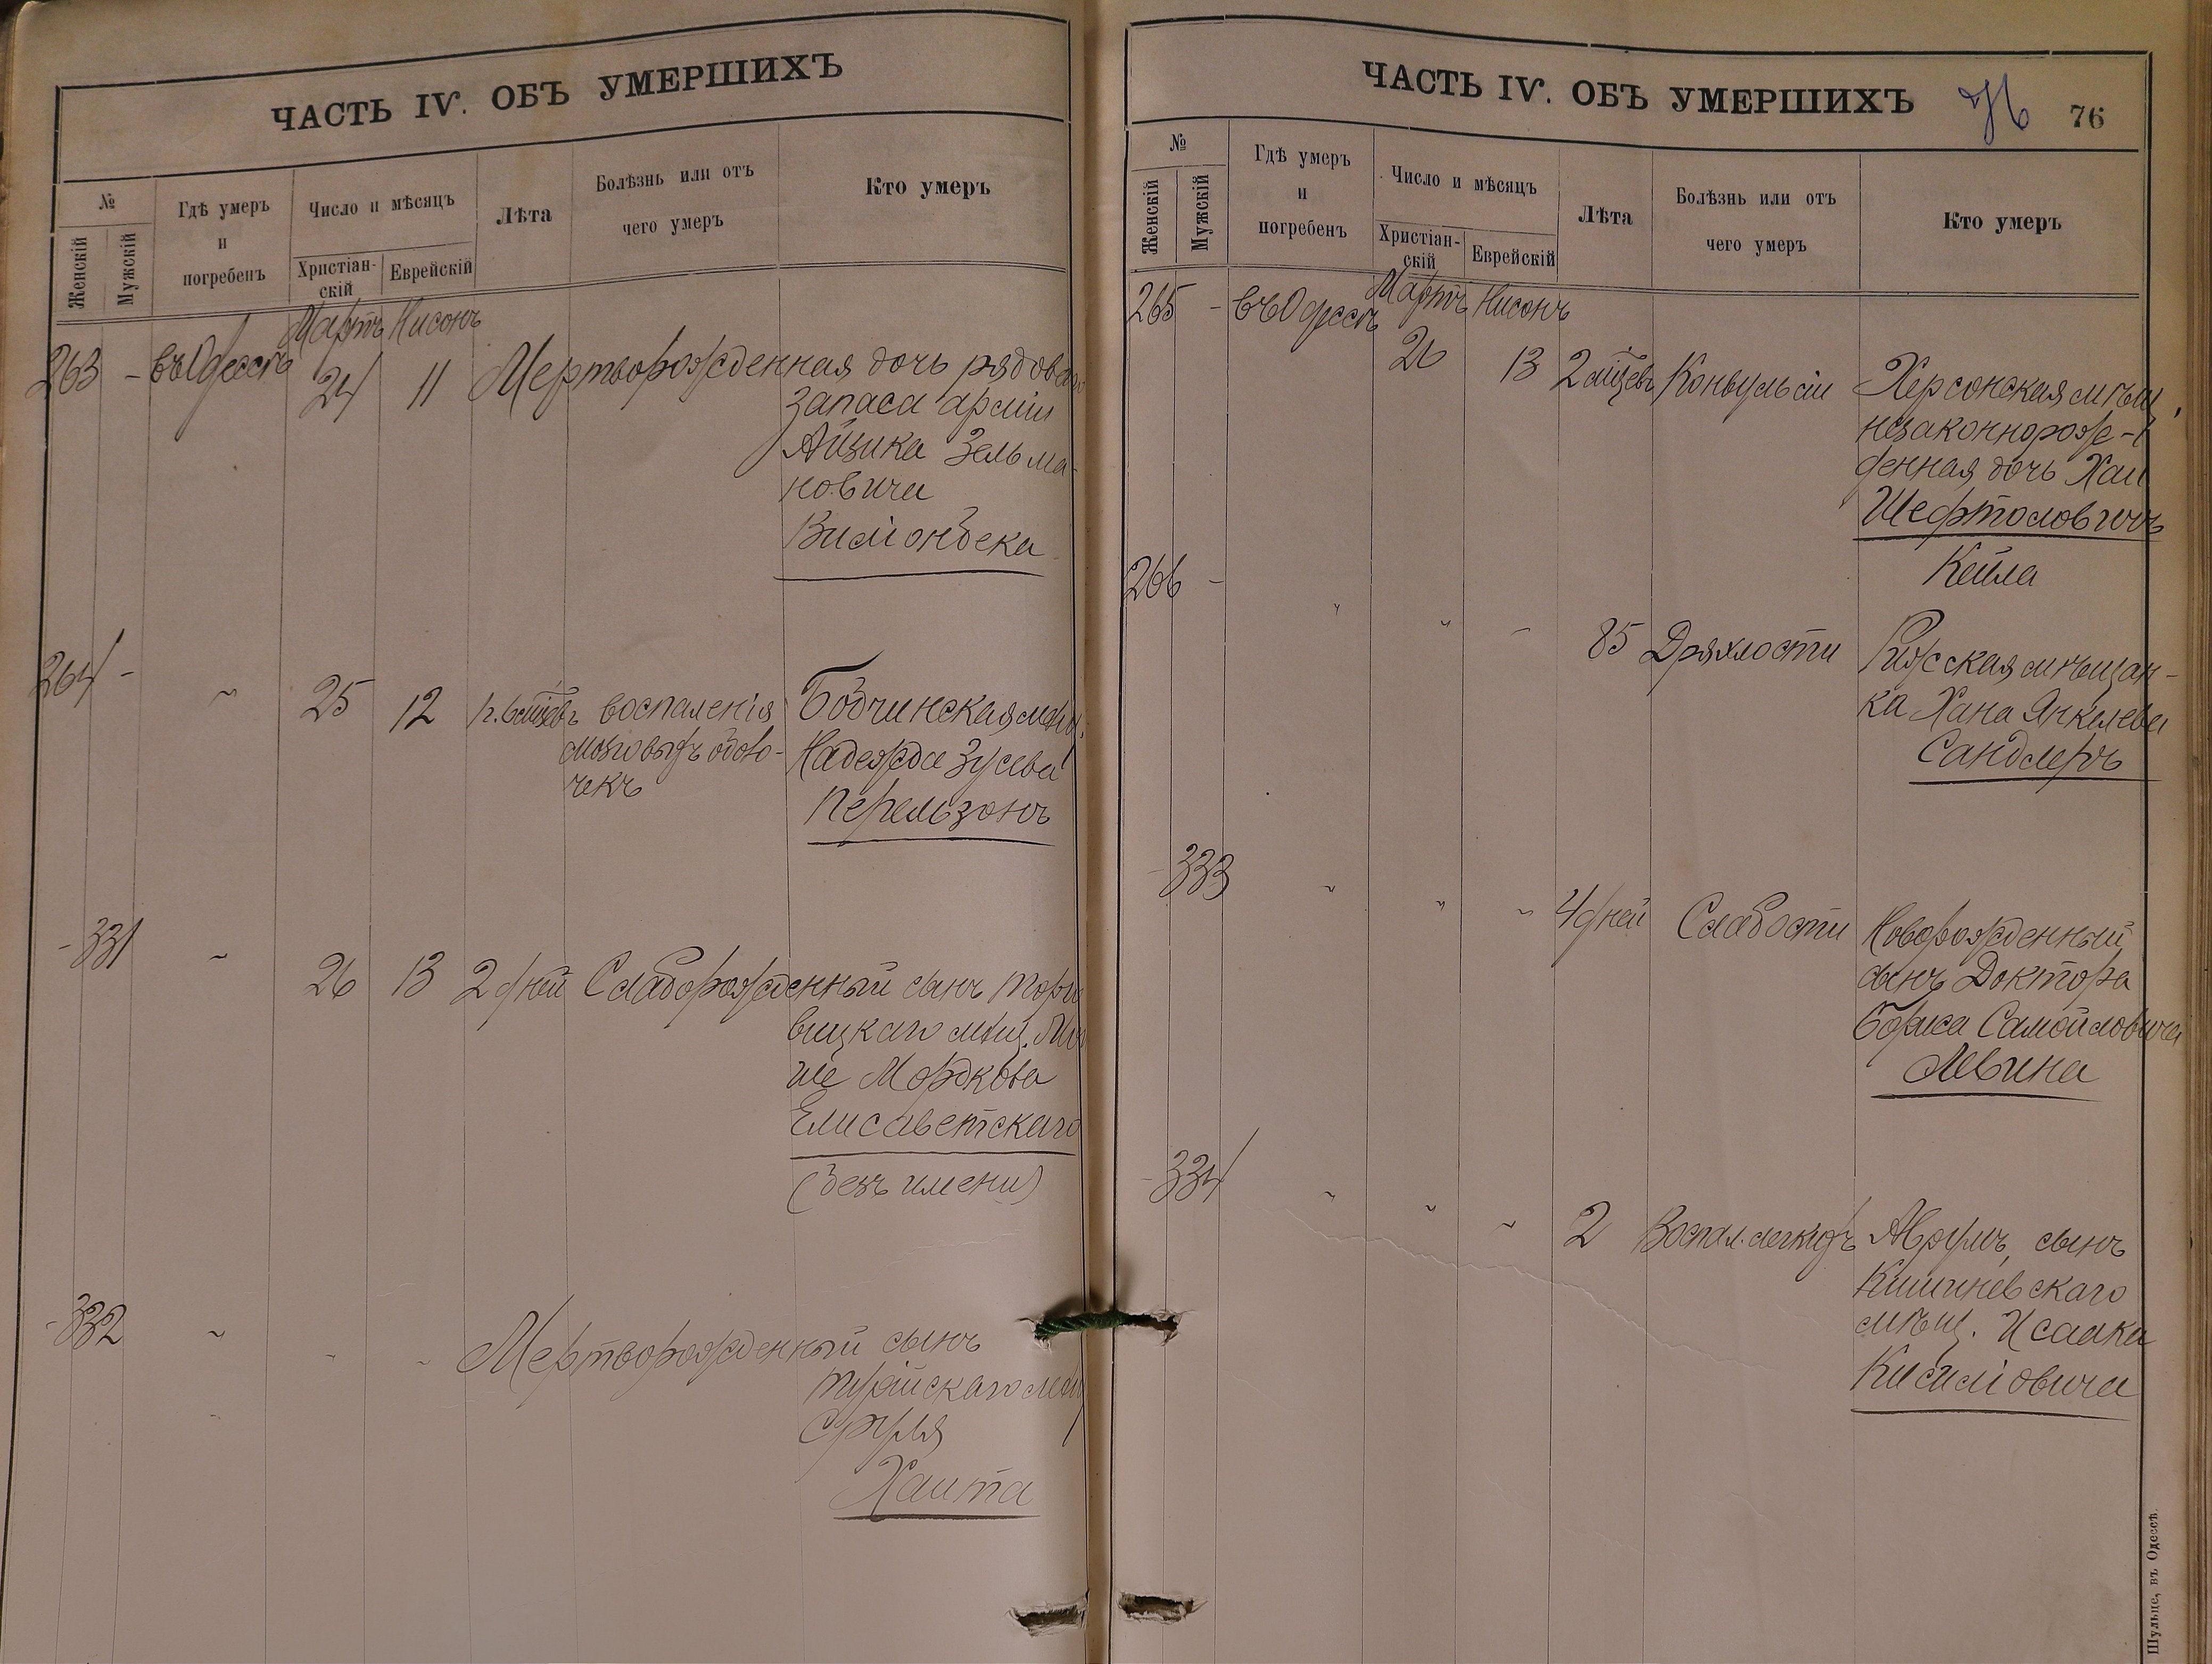 ЧАСТЬ IV. ОБЪ УМЕРШИХЪ
№
Женскій
Мужскій
Гдѣ умеръ
и
погребенъ
Число и мѣсяцъ
Христіан-
скій
Еврейскій
Лѣта
Болѣзнь или отъ
чего умеръ
Кто умеръ
Мартъ Нисонъ
263 - въ Одессѣ 24 11 Мертворожденная дочь рядового
запаса арміи
Айзика Зельма-
новича
264 - " 25 12 воспаленія
мозговыхъ оболо-
чекъ
Надежда Зусева
Перельзонъ
- 331 " 26 13 2 дней Слаборожденный сынъ
мѣщ.
Мордкова
Елисаветскаго
(безъ имени)
- 332 " " " Мертворожденный сынъ
Сруля
Хаита
ЧАСТЬ IV. ОБЪ УМЕРШИХЪ 76 76
№
Женскій
Мужскій
Гдѣ умеръ
и
погребенъ
Число и мѣсяцъ
Христіан-
скій
Еврейскій
Лѣта
Болѣзнь или отъ
чего умеръ
Кто умеръ
Мартъ Нисонъ
265 - въ Одессѣ 26 13 2 мѣсяцевъ Конвульсіи Херсонская мѣщ.
незаконнорож-
денная дочь Хаи
Шефтеловичъ
Кейла
266 - " " " 85 Дряхлости мѣщан-
ка Хана Янкелева
Сандлеръ
- 333 " " " 4 дней Слабости Новорожденный
сынъ Доктора
Бориса Самойловича
Левина
- 334 " " " 2 Воспал. легкихъ Аврумъ, сынъ
Кишиневскаго
мѣщ. Исаака
Шульце, въ Одессѣ.